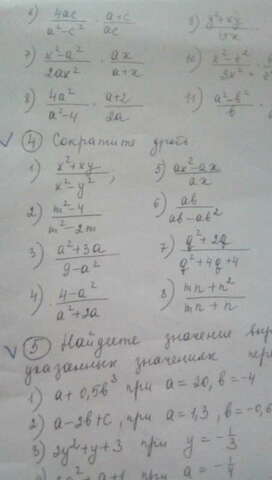 4ac / a²-c² · a+c / ac
7) x²-a² / 2ax² · ax / a+x
8) 4a² / a²-4 · a+2 / 2a
10)
11) a²-b² / b ·
④ Сократите дробь
1) x²+xy / x²-y² ;
5) ax²-ax / ax
2) m²-4 / m²-2m
6) ab / ab-ab²
3) a²+3a / 9-a²
7) q²+2q / q²+4q+4
4) 4-a² / a²+2a
8) mn+n² / mn+n
⑤ Найдите значение
указанных значениях
1) a+0,5b³ при a=20, b=-4
2) a-2b+c, при a=1,3, b=-0,6
3) 2y²+y+3 при y=-1/3
a²+a+1 при a=-1/4